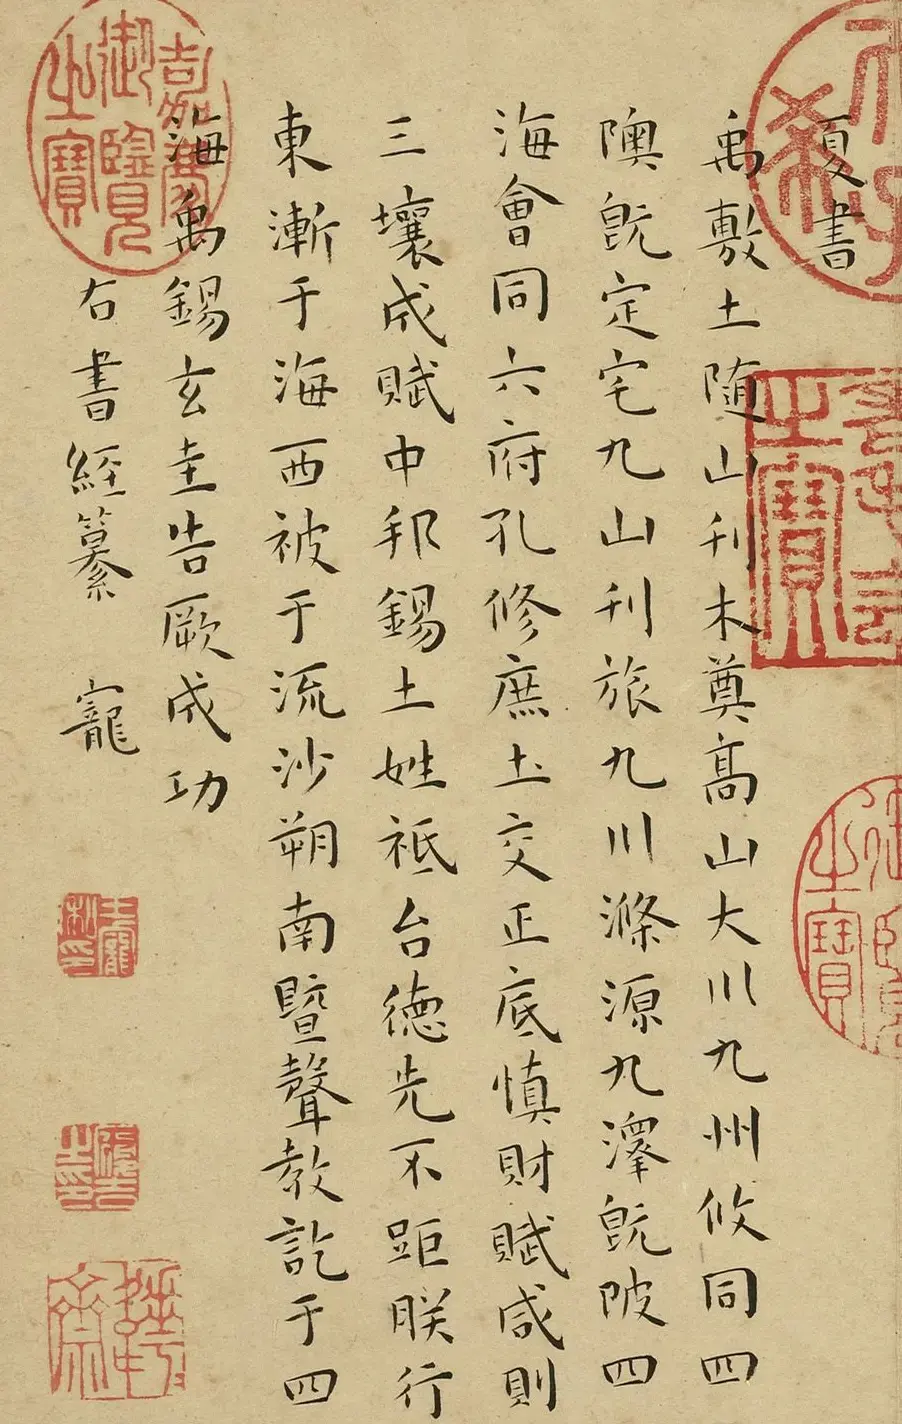 夏書
禹敷土随山刋木奠高山大川九州攸同四
隩旣定宅九山刋旅九川滌源九澤旣陂四
海會同六府孔修庶土交正底慎財賦咸則
三壤成賦中邦錫土姓祗台德先不距朕行
東漸于海西被于流沙朔南曁聲教訖于四
海禹錫玄圭告厥成功
右書經纂 寵
嘉慶御覽之寶
之寶